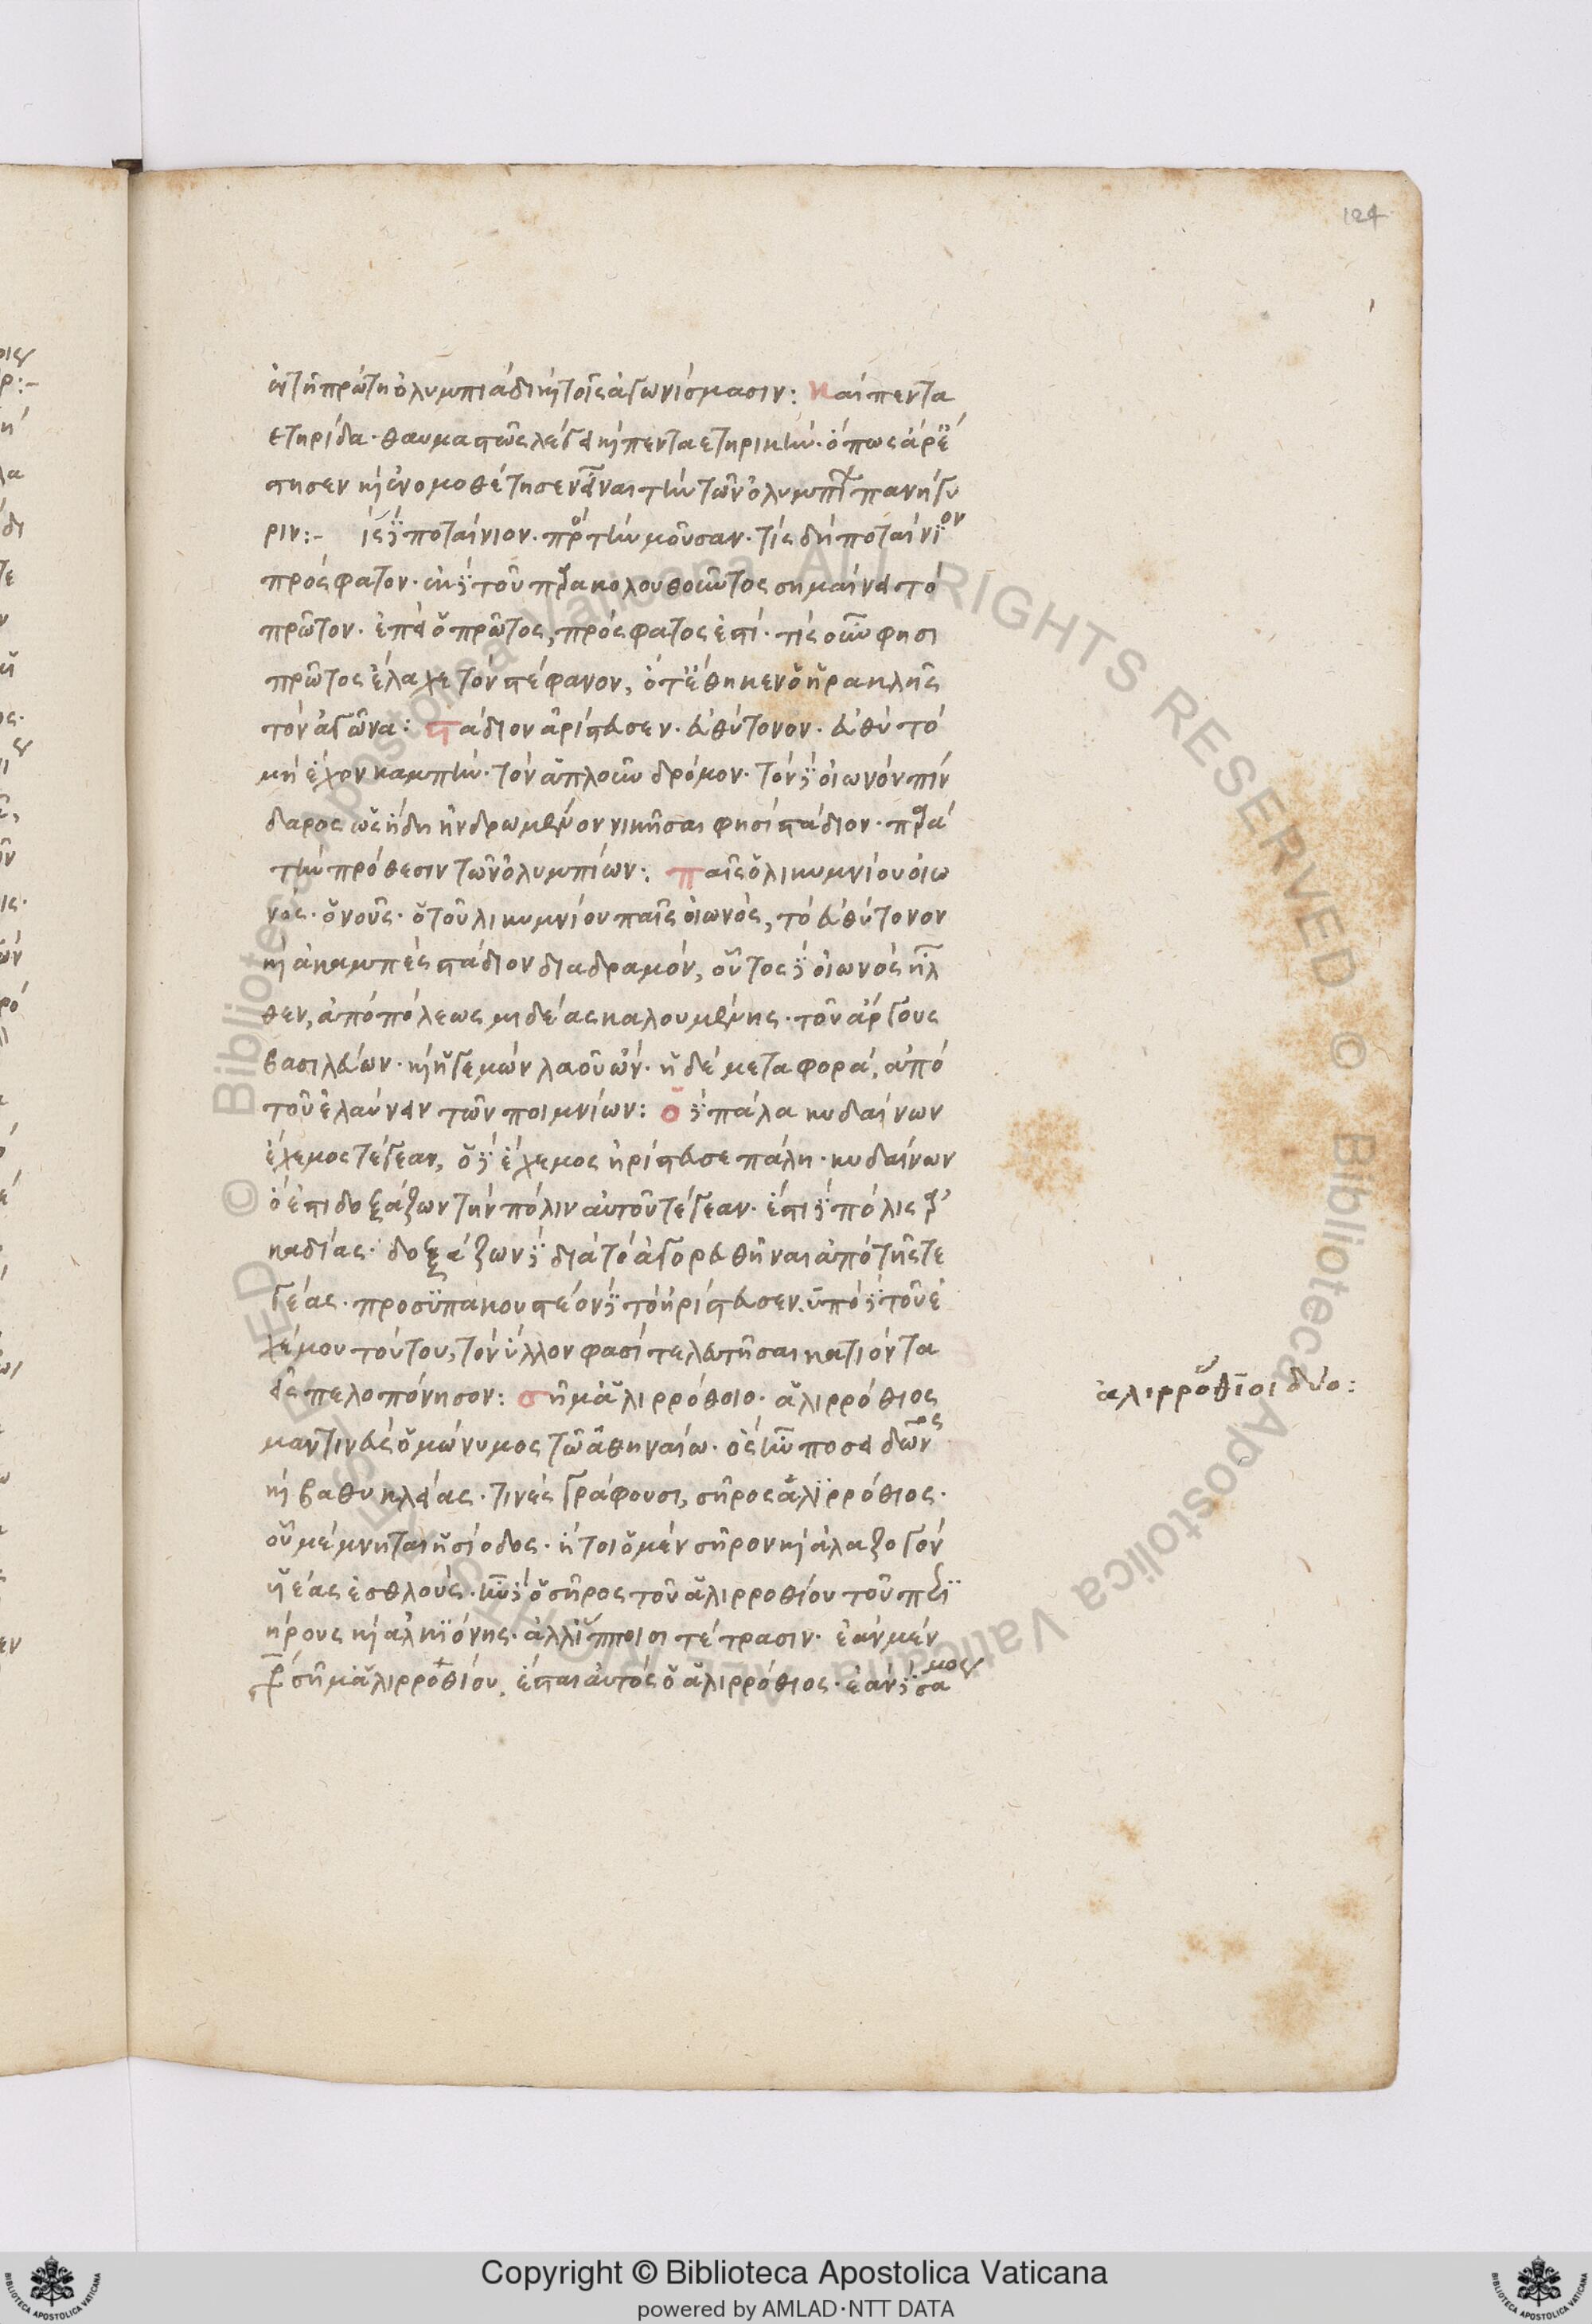 124
ἐν τῆ πρώτη ὀλυμπιάδι κὶ τοῖς ἀγωνίσμασιν: Και πεντα
ετηρίδα· θαυμαστῶς λέγει κὶ πενταετηρικὴν· ὅπως ἄρα ἔ
στησεν κὶ ἐνομοθέτησεν εἶναι τὴν τῶν ὀλυμπίων πανήγυ
ριν:– τίς δὲ ποταίνιον· πρὸς τὴν μοῦσαν· τίς δὴ ποταίνιον
πρόσφατον· ἐκ δὲ τοῦ παρακολουθοῦντος σημαίνει τὸ
πρῶτον· ἐπεὶ ὁ πρῶτος, πρόσφατος ἐστί· τίς οὖν φησι
πρῶτος ἔλαχε τὸν στέφανον, ὅτε ἔθηκεν ὁ ἡρακλῆς
τὸν ἀγῶνα: στάδιον ἀρίστευσεν· εὐθύτονον· εὐθὺ τὸ
μὴ ἔχον καμπὴν· τὸν ἁπλοῦν δρόμον· τὸν δὲ οἰωνὸν πίν
δαρος ὡς ἤδη ἠνδρωμένον νικῆσαι φησὶ στάδιον· παρὰ
τὴν πρόθεσιν τῶν ὀλυμπίων: παῖς ὁ λικυμνίου οἰω
νός· ὁ νοῦς· ὁ τοῦ λικυμνίου παῖς οἰωνὸς, τὸ εὐθύτονον
κὶ ἀκαμπὲς στάδιον διαδραμὸν, οὗτος δὲ οἰωνὸς ἦλ
θεν, ἀπὸ πόλεως μιδέας καλουμένης· τοῦ ἄργους
βασιλεύων· κὶ ἡγεμὼν λαοῦ ὢν· ἡ δὲ μεταφορὰ, ἀπὸ
τοῦ ἐλαύνειν τῶν ποιμνίων: ὁ δὲ πάλα κυδαίνων
ἔχεμος τέγεαν, ὁ δὲ ἔχεμος ἠρίστευσε πάλη· κυδαίνων
ὅ ἐστι δοξάζων τὴν πόλιν αὐτοῦ τέγεαν· ἔστι δὲ πόλις ἀρ
καδίας· δοξάζων δὲ διὰ τὸ ἀγορευθῆναι ἀπὸ τῆς τε
γέας· προσϋπακουστέον δὲ τὸ ἠρίστευσεν. ὑπὸ δὲ τοῦ ἐ
χέμου τούτου, τὸν ὕλλον φασὶ τελευτῆσαι κατιόντα
εἰς πελοπόνησον: σῆμ' ἁλιρρόθοιο· ἁλιρρόθιος
μαντινεὺς ὁμώνυμος τῶ ἀθηναίω· ὃς ἦν ποσειδῶνος
κὶ βαθυκλείας· τινὲς γράφουσι, σῆρος ἁλϊρρόθιος·
οὗ μέμνηται ἡσίοδος· ἤτοι ὁ μὲν σῆρον κὶ ἀλάζογον
υἱέας ἐσθλούς· ἦν δὲ ὁ σῆρος τοῦ ἁλιρροθίου τοῦ περϊ
ήρους κὶ ἀλκϊόνης· ἀλλ' ἵπποισι τέτρασιν· ἐὰν μὲν
γρ σῆμ' ἁλιρροθίου, ἔσται αὐτὸς ὁ ἁλιρρόθιος· ἐὰν δὲ σαμος
ἁλιρρόθϊοι δύο:
Copyright © Biblioteca Apostolica Vaticana
powered by AMLAD·NTT DATA